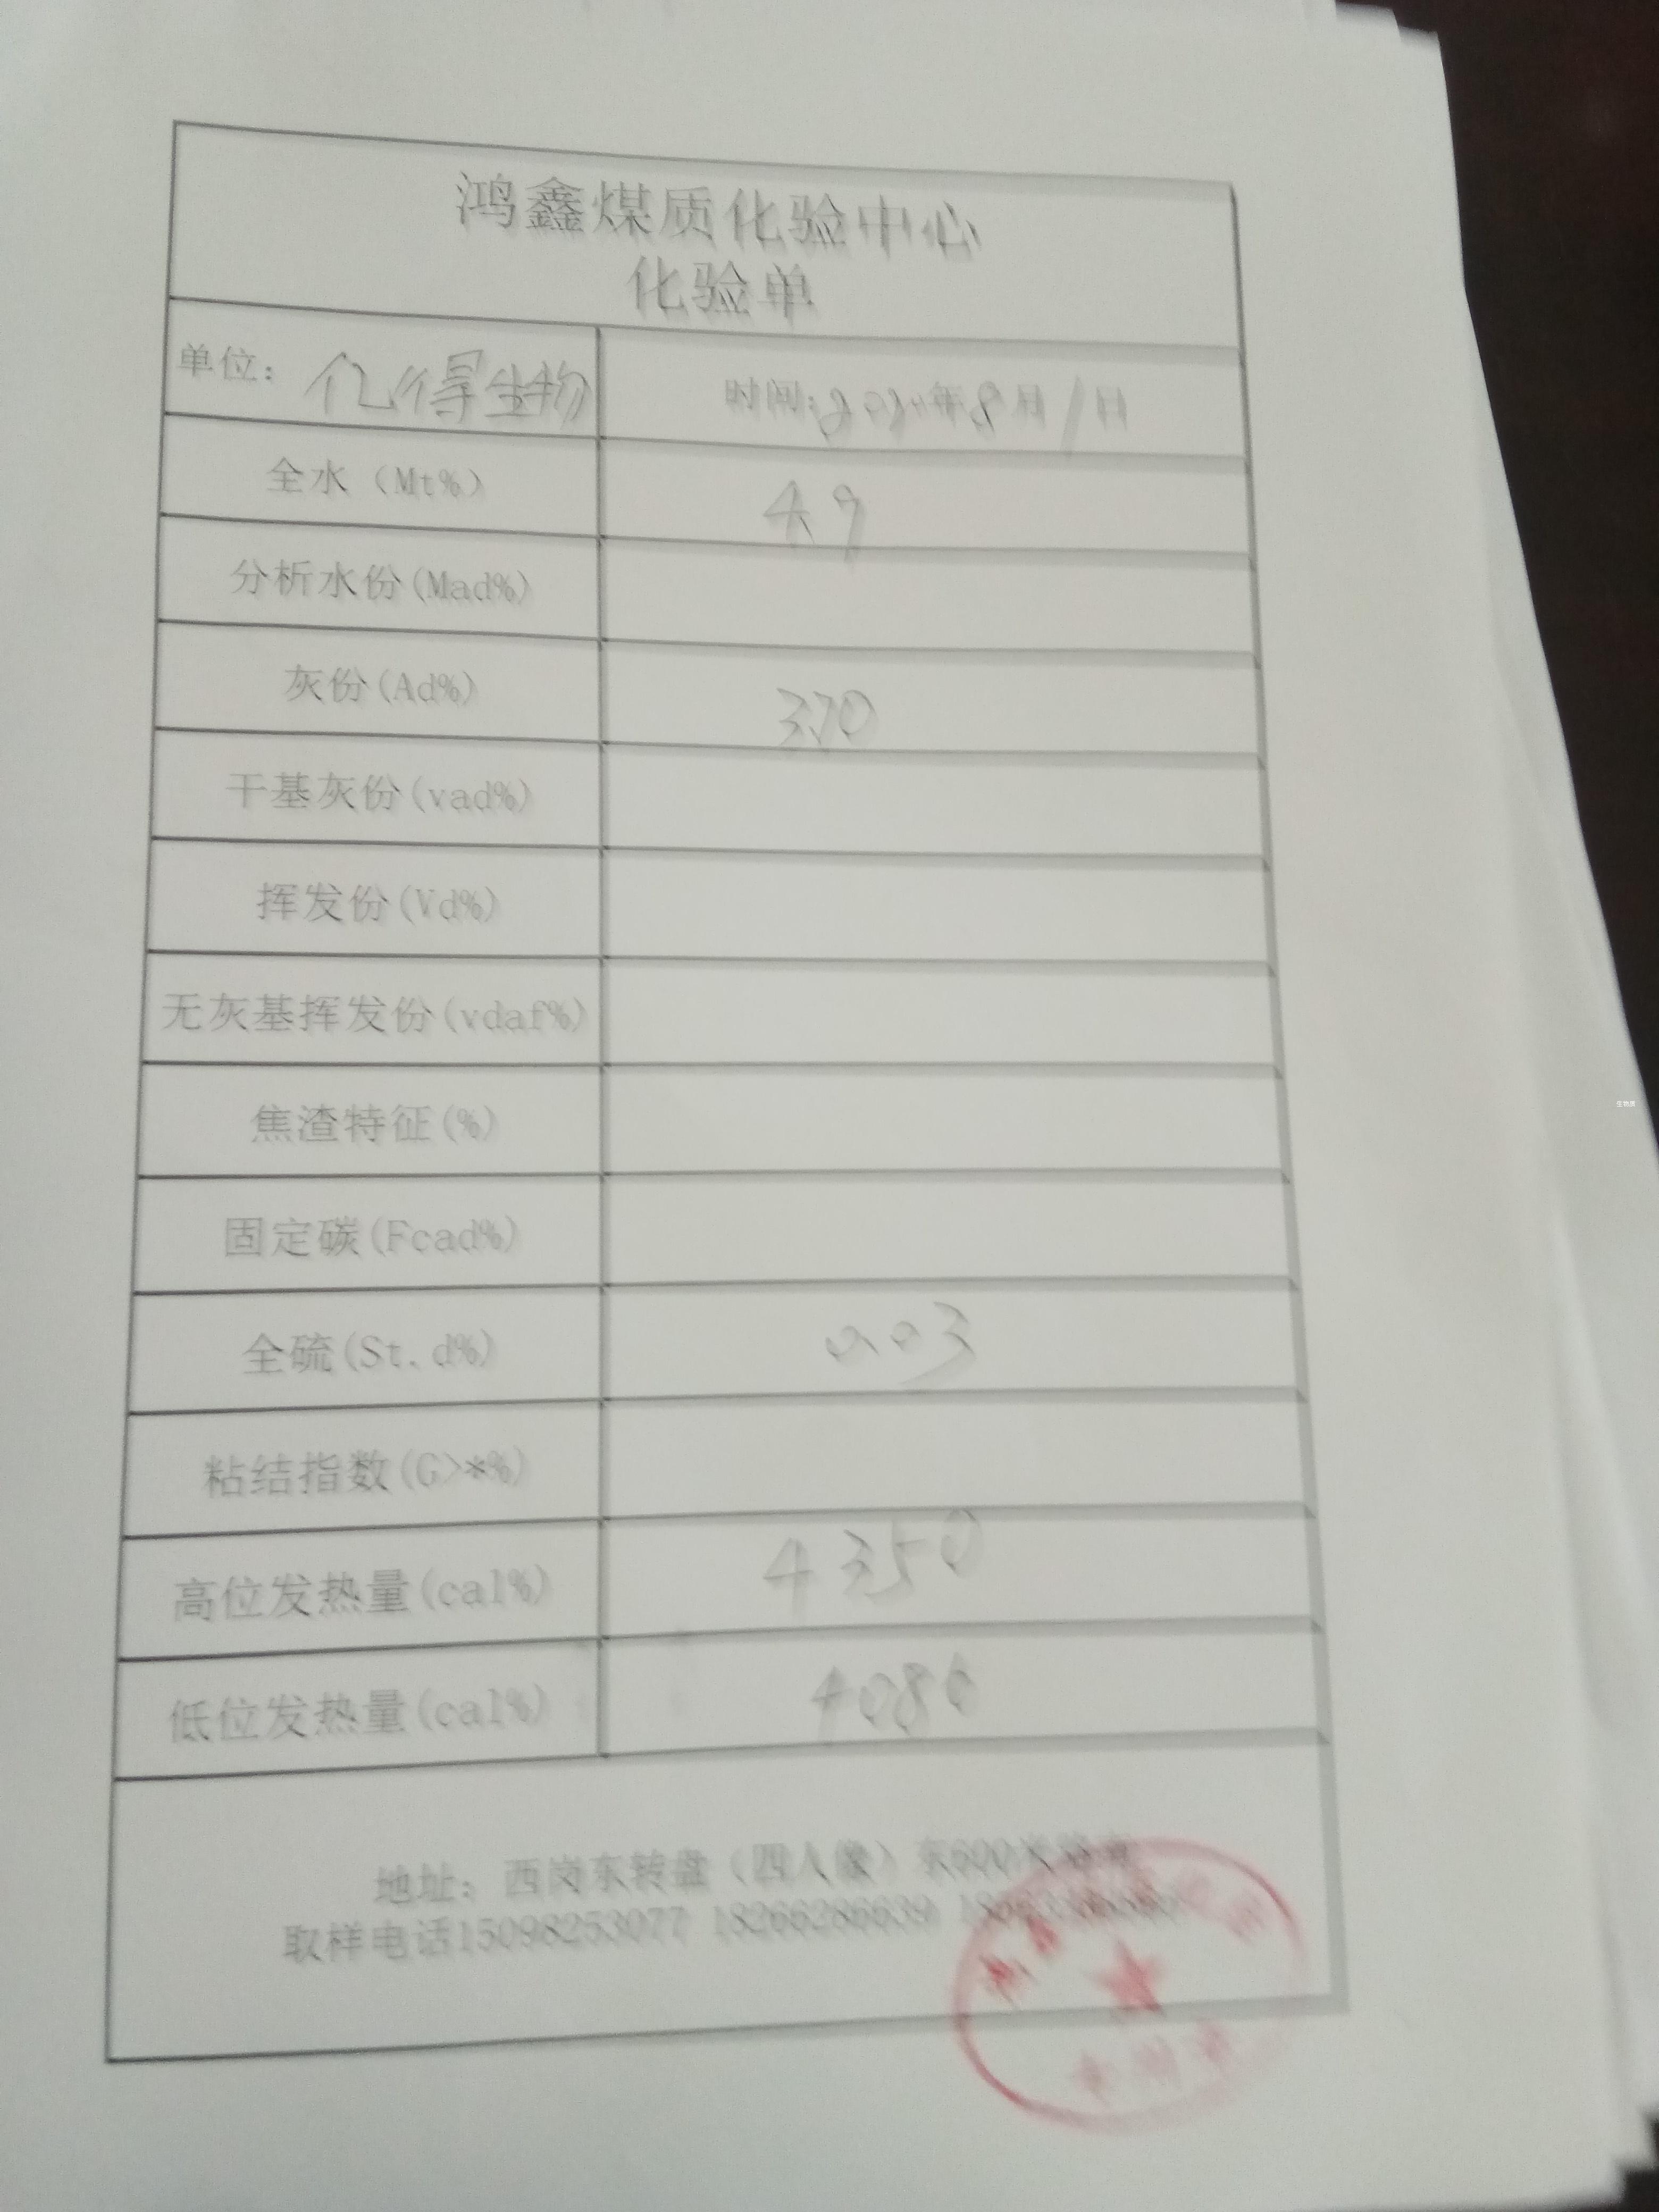 鸿鑫煤质化验中心
化验单
单位: 亿得生物
时间: 年8月1日
全水 (Mt%) 4.9
分析水份(Mad%)
灰份(Ad%) 3.70
干基灰份(vad%)
挥发份(Vd%)
无灰基挥发份(vdaf%)
焦渣特征(%)
固定碳(Fcad%)
全硫(St.d%) 0.03
粘结指数(G>*%)
高位发热量(cal%) 4350
低位发热量(cal%) 4086
地址: 西岗东转盘 (四人像) 东600米路南
取样电话15098253077 18266286639
生物质